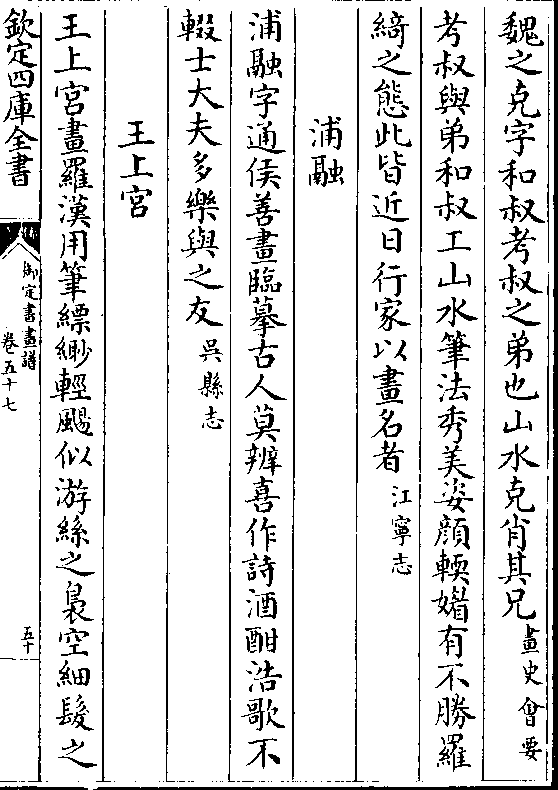 魏之克字和叔考叔之弟也山水克肖其兄畫史會要
考叔與弟和叔工山水筆法秀美姿顔輭媚有不勝羅
綺之態此皆近日行家以畫名者江寧志
浦融
浦融字通侯善畫臨摹古人莫辨喜作詩酒酣浩歌不
輟士大夫多樂與之友吳縣志
王上宮
王上宮畫羅漢用筆縹緲輕颺似游絲之裊空細髮之
欽定四庫全書
御定書畫譜
卷五十七
五十